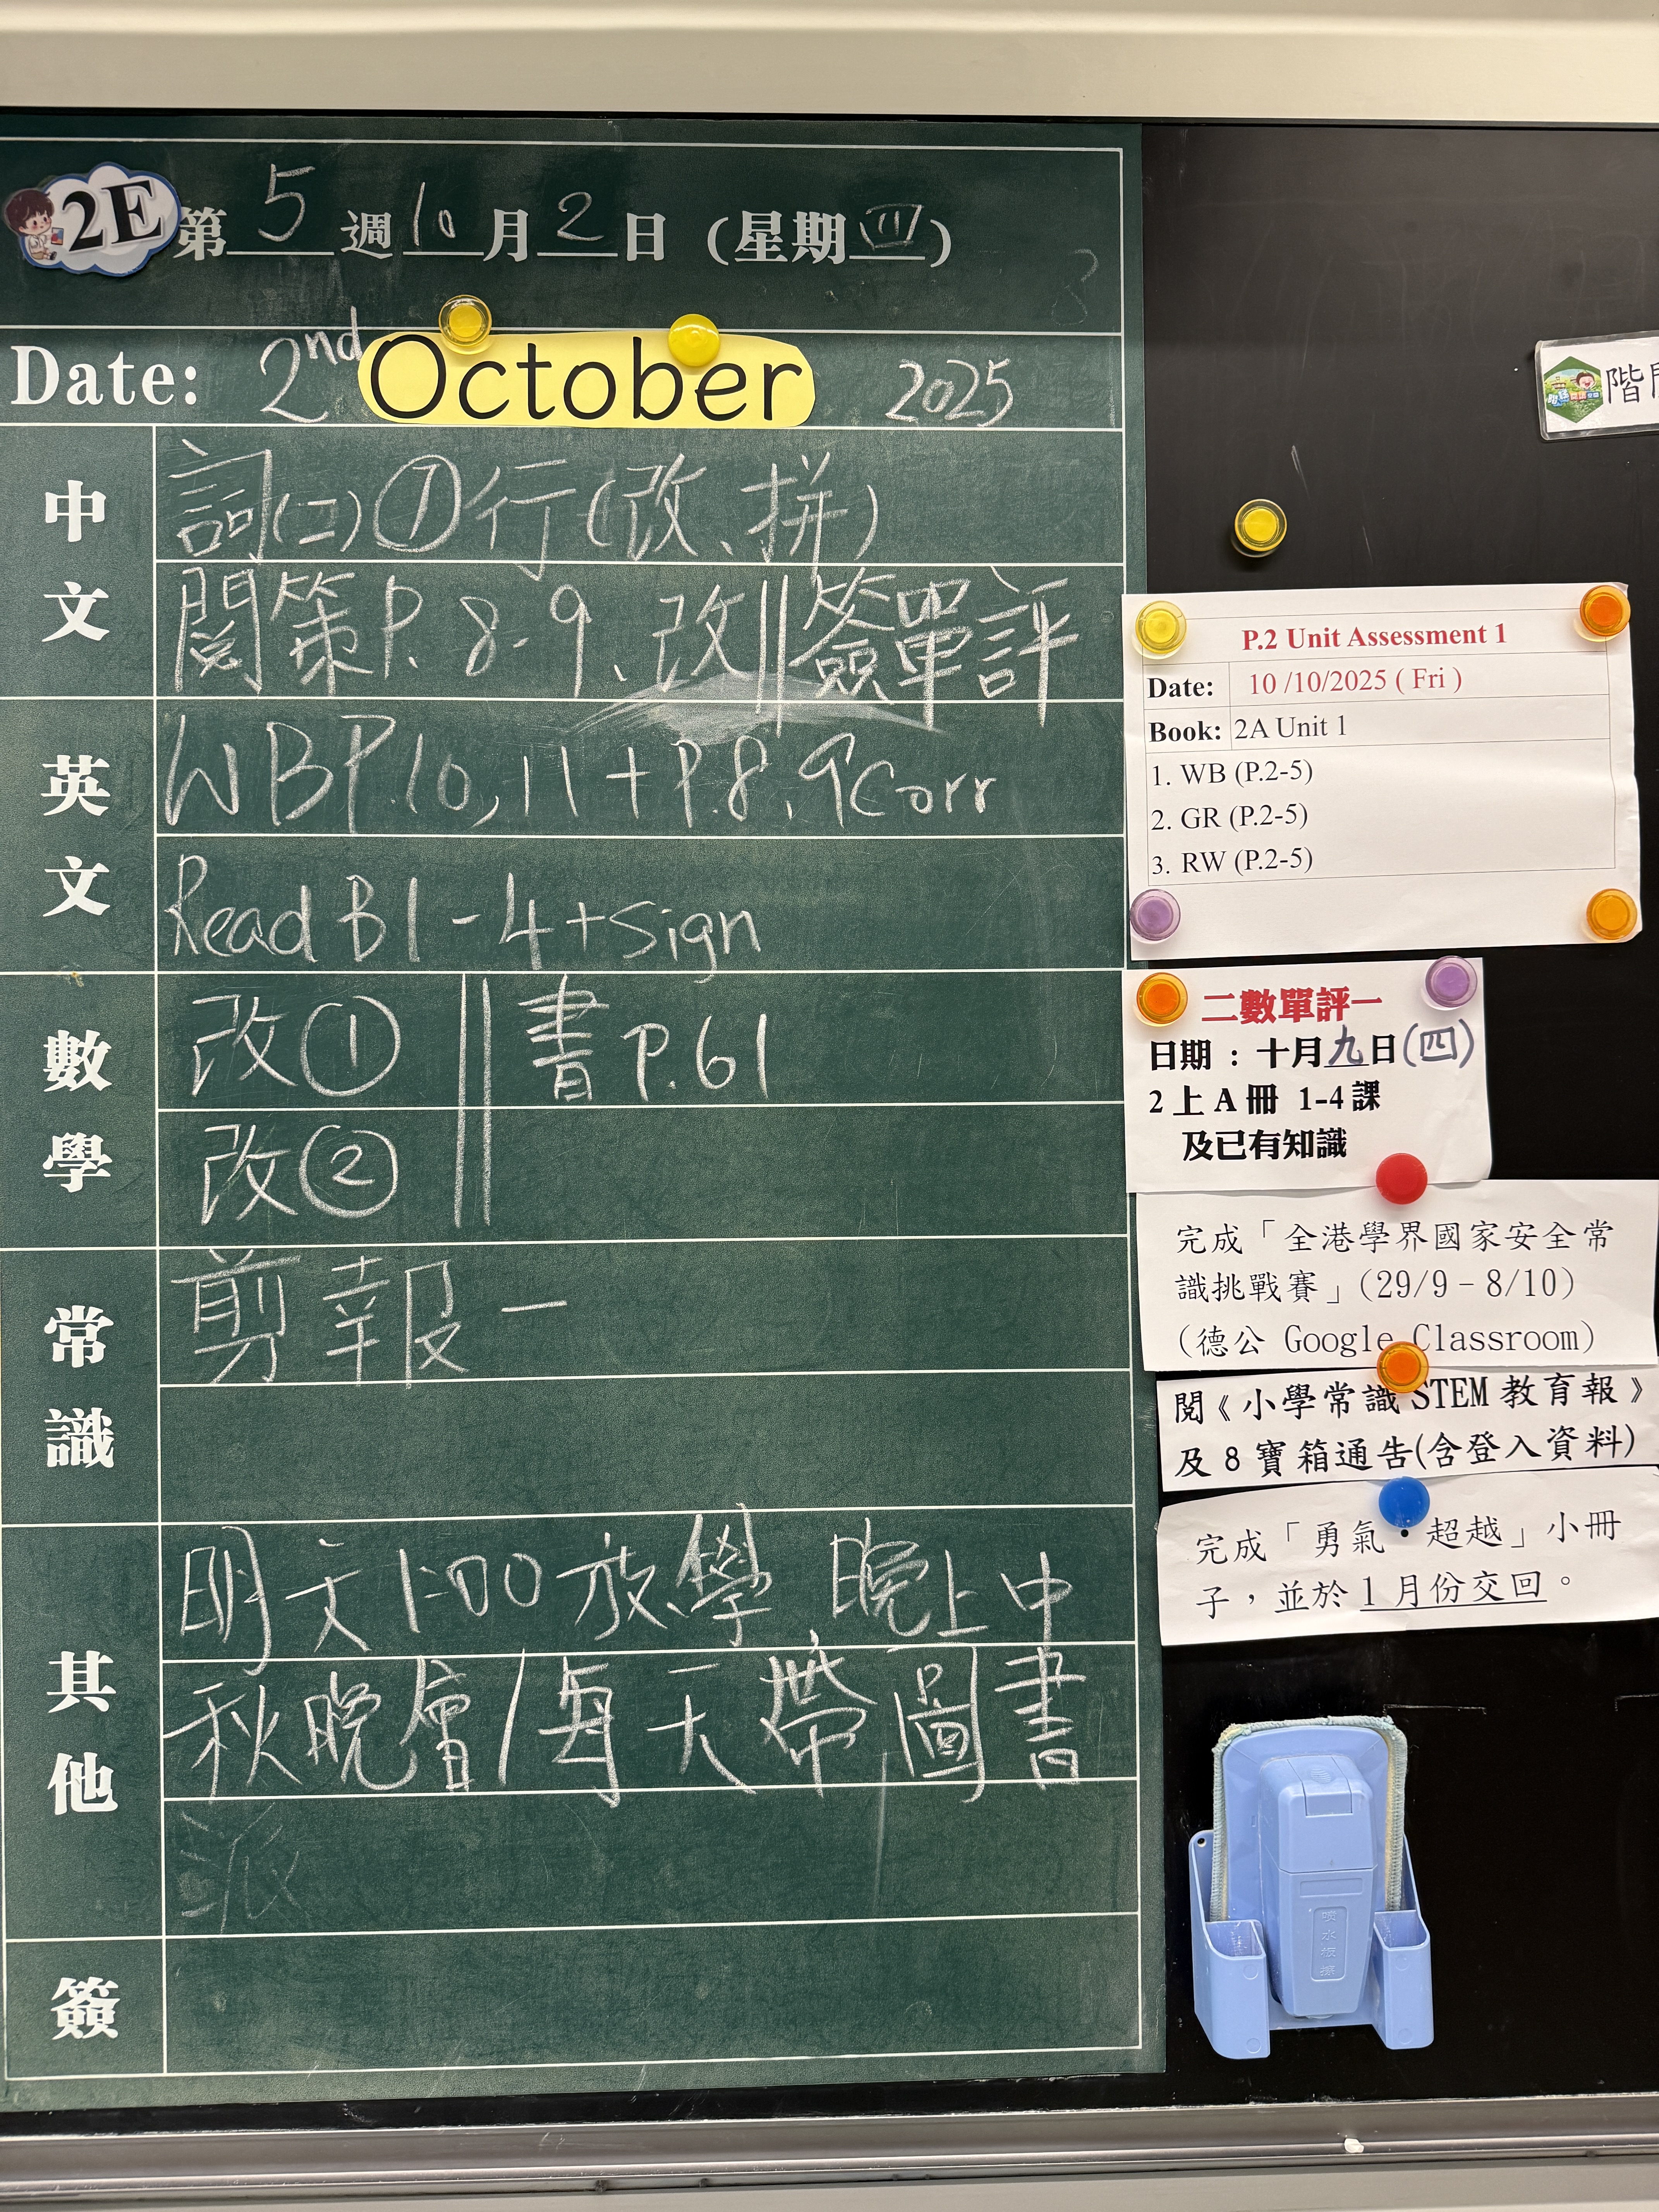 2E 第 5 週 10 月 2 日 (星期四)
Date: 2nd October 2025
中文
詞(二)⑦行(改、拼)
閱策P.8-9、改||簽單評
英文
WB P.10, 11 + P.8, 9 Corr
Read B1-4 + sign
數學
改① || 書 P.61
改②
常識
剪報一
其他
明文1:00放學 晚上中
秋晚會/每天帶圖書
派
簽
階
P.2 Unit Assessment 1
Date: 10 /10/2025 ( Fri )
Book: 2A Unit 1
1. WB (P.2-5)
2. GR (P.2-5)
3. RW (P.2-5)
二數單評一
日期 : 十月九日(四)
2 上 A 冊 1-4 課
及已有知識
完成「全港學界國家安全常
識挑戰賽」(29/9 - 8/10)
(德公 Google Classroom)
閱《小學常識 STEM 教育報》
及 8 寶箱通告(含登入資料)
完成「勇氣・超越」小冊
子，並於 1 月份交回。
吸水板擦